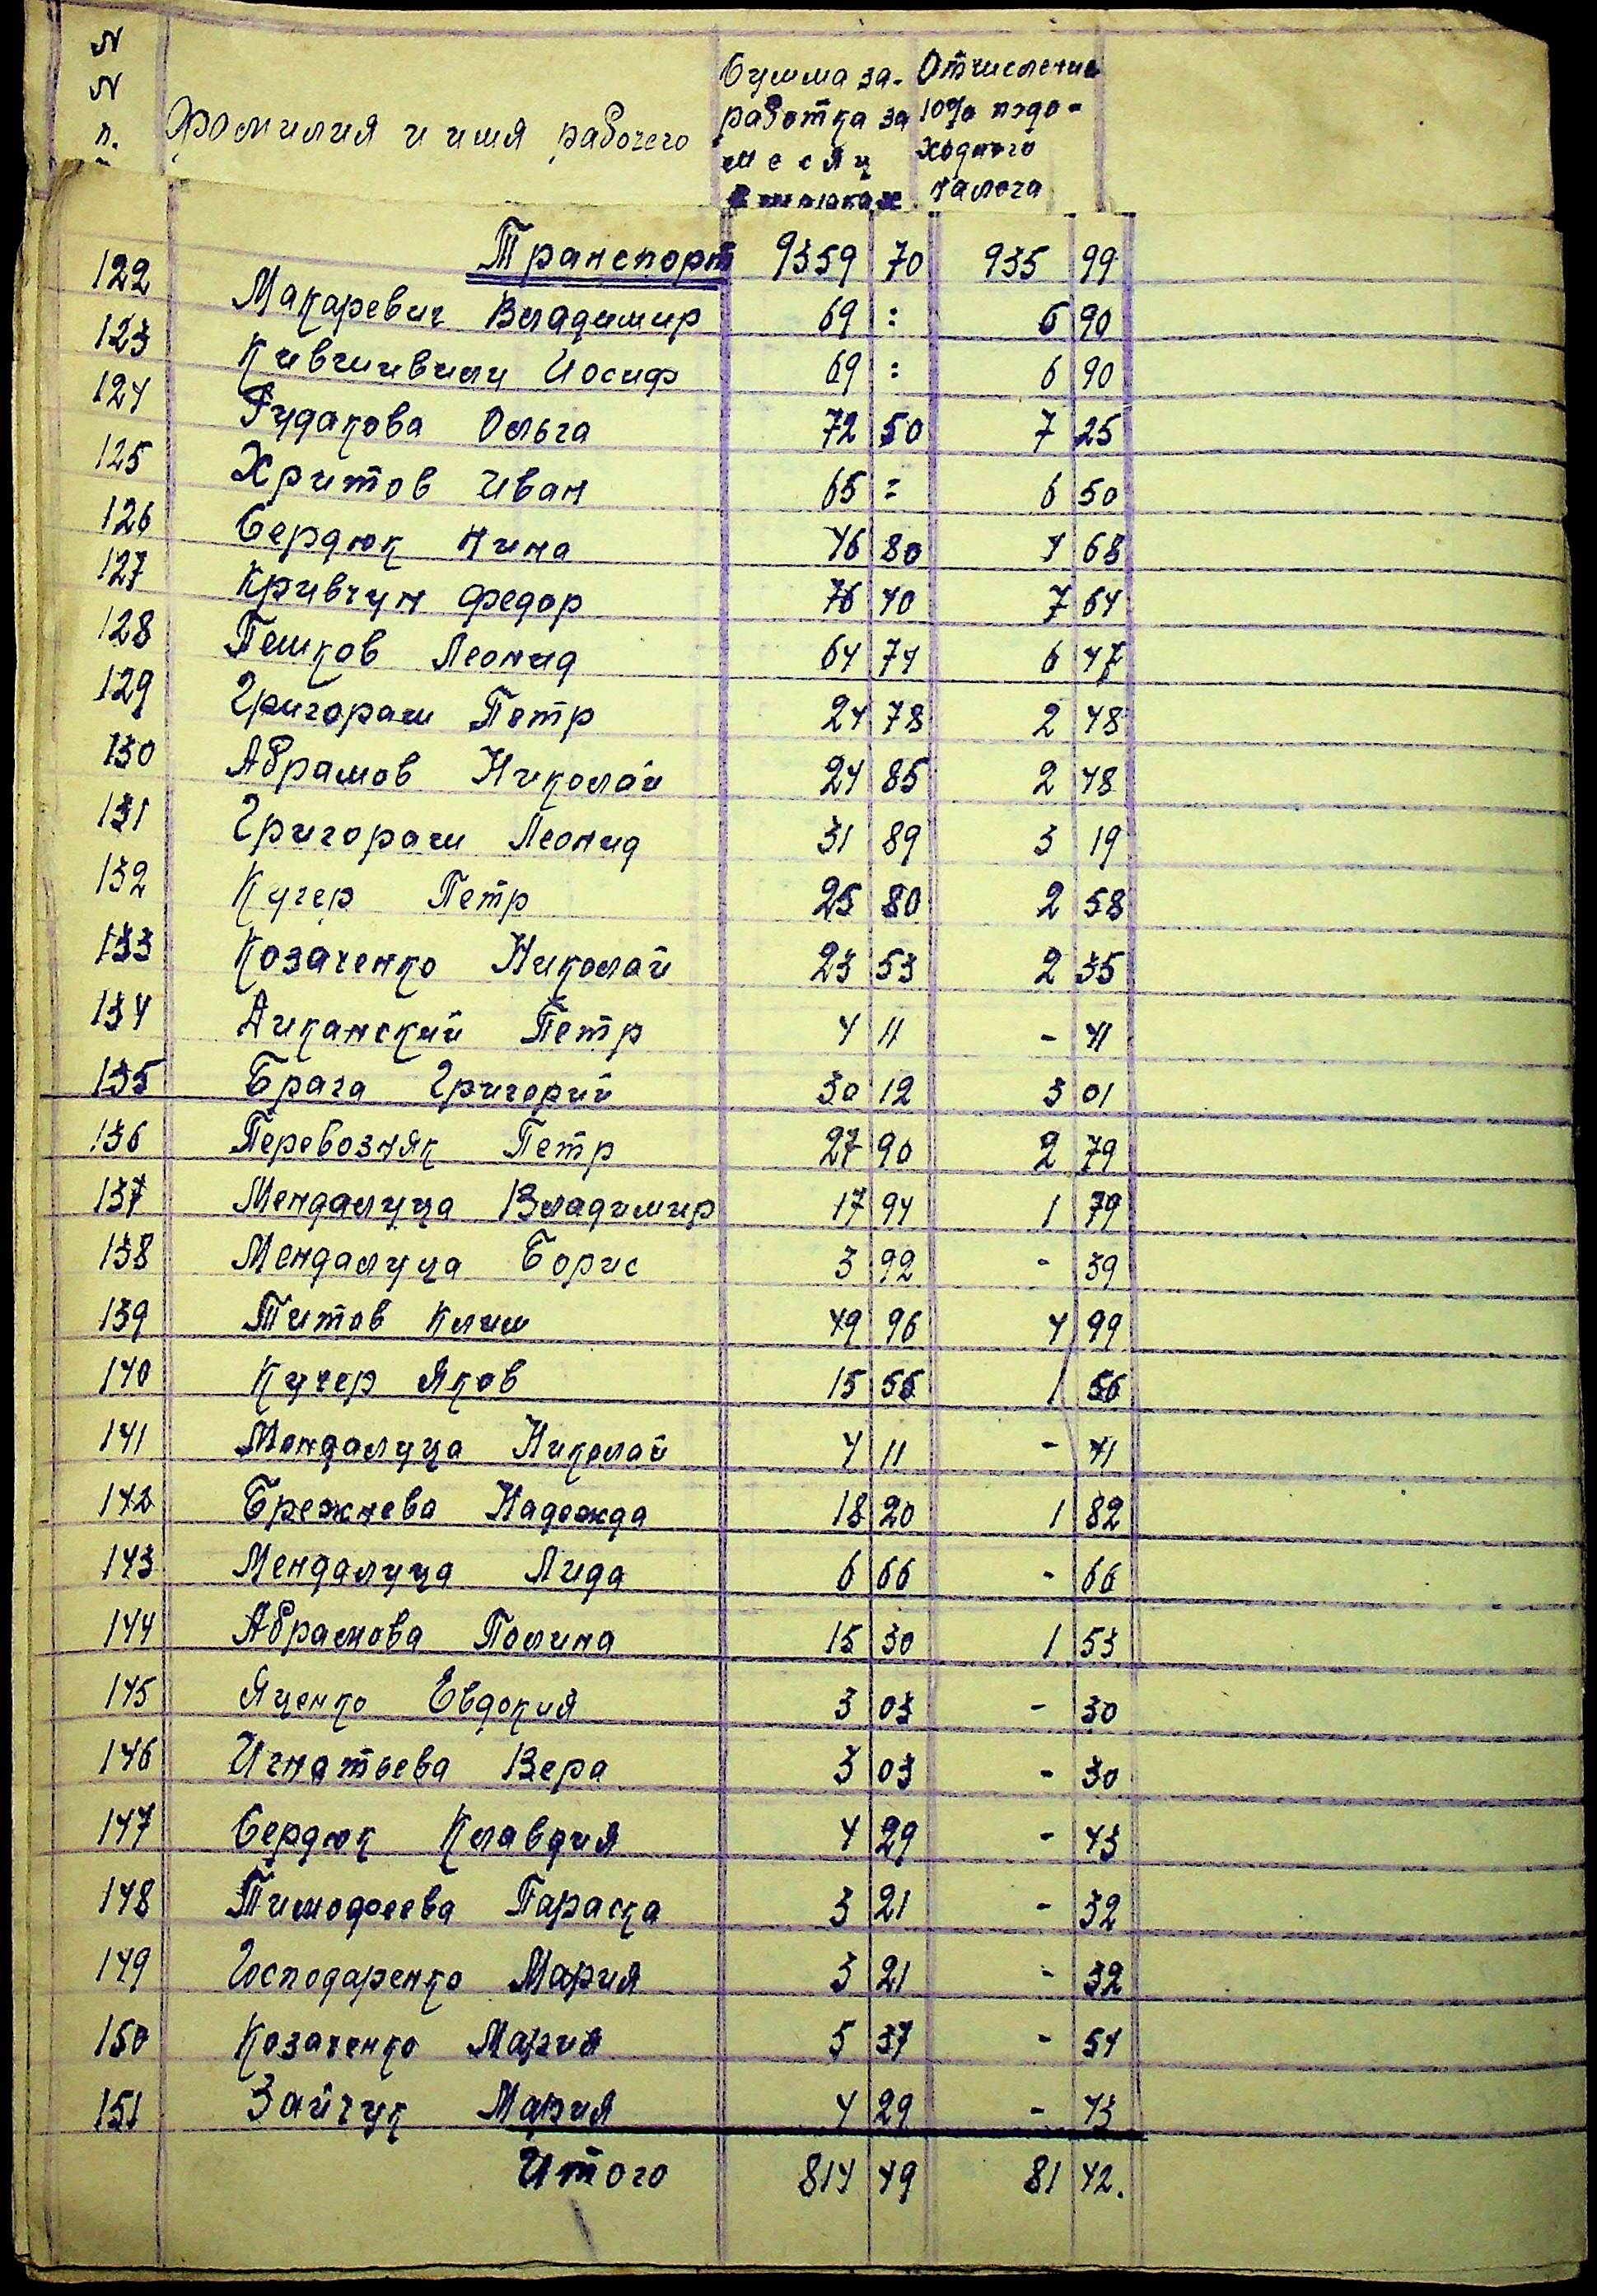 N
N
п.
Фамилия и имя рабочего
Сумма за-
работка за
месяц
Отчисление
10% подо-
ходного
налога
Транспорт 9359 70 935 99
122 Макаревич Владимир 69 = 6 90
123 Кившивили Иосиф 69 = 6 90
124 Рудакова Ольга 72 50 7 25
125 Хритов Иван 65 = 6 50
126 Сердюк Нина 46 80 4 68
127 Кривчун Федор 76 40 7 64
128 Пешков Леонид 64 74 6 47
129 Григораш Петр 24 78 2 48
130 Абрамов Николай 24 85 2 48
131 Григораш Леонид 31 89 3 19
132 Кучер Петр 25 80 2 58
133 Козаченко Николай 23 53 2 35
134 Диканский Петр 4 11 - 41
135 Брага Григорий 30 12 3 01
136 Перевозняк Петр 27 90 2 79
137 Мендалуца Владимир 17 94 1 79
138 Мендалуца Борис 3 92 - 39
139 Титов Клим 49 96 4 99
140 Кучер Яков 15 55 1 56
141 Мендалуца Николай 4 11 - 41
142 Брежнева Надежда 18 20 1 82
143 Мендалуца Лида 6 66 - 66
144 Абрамова Полина 15 30 1 53
145 Яценко Евдокия 3 03 - 30
146 Игнатьева Вера 3 03 - 30
147 Сердюк Клавдия 4 29 - 43
148 Тимофеева Параска 3 21 - 32
149 Господаренко Мария 3 21 - 32
150 Козаченко Мария 5 37 - 54
151 Зайчук Мария 4 29 - 43
Итого 814 49 81 42.